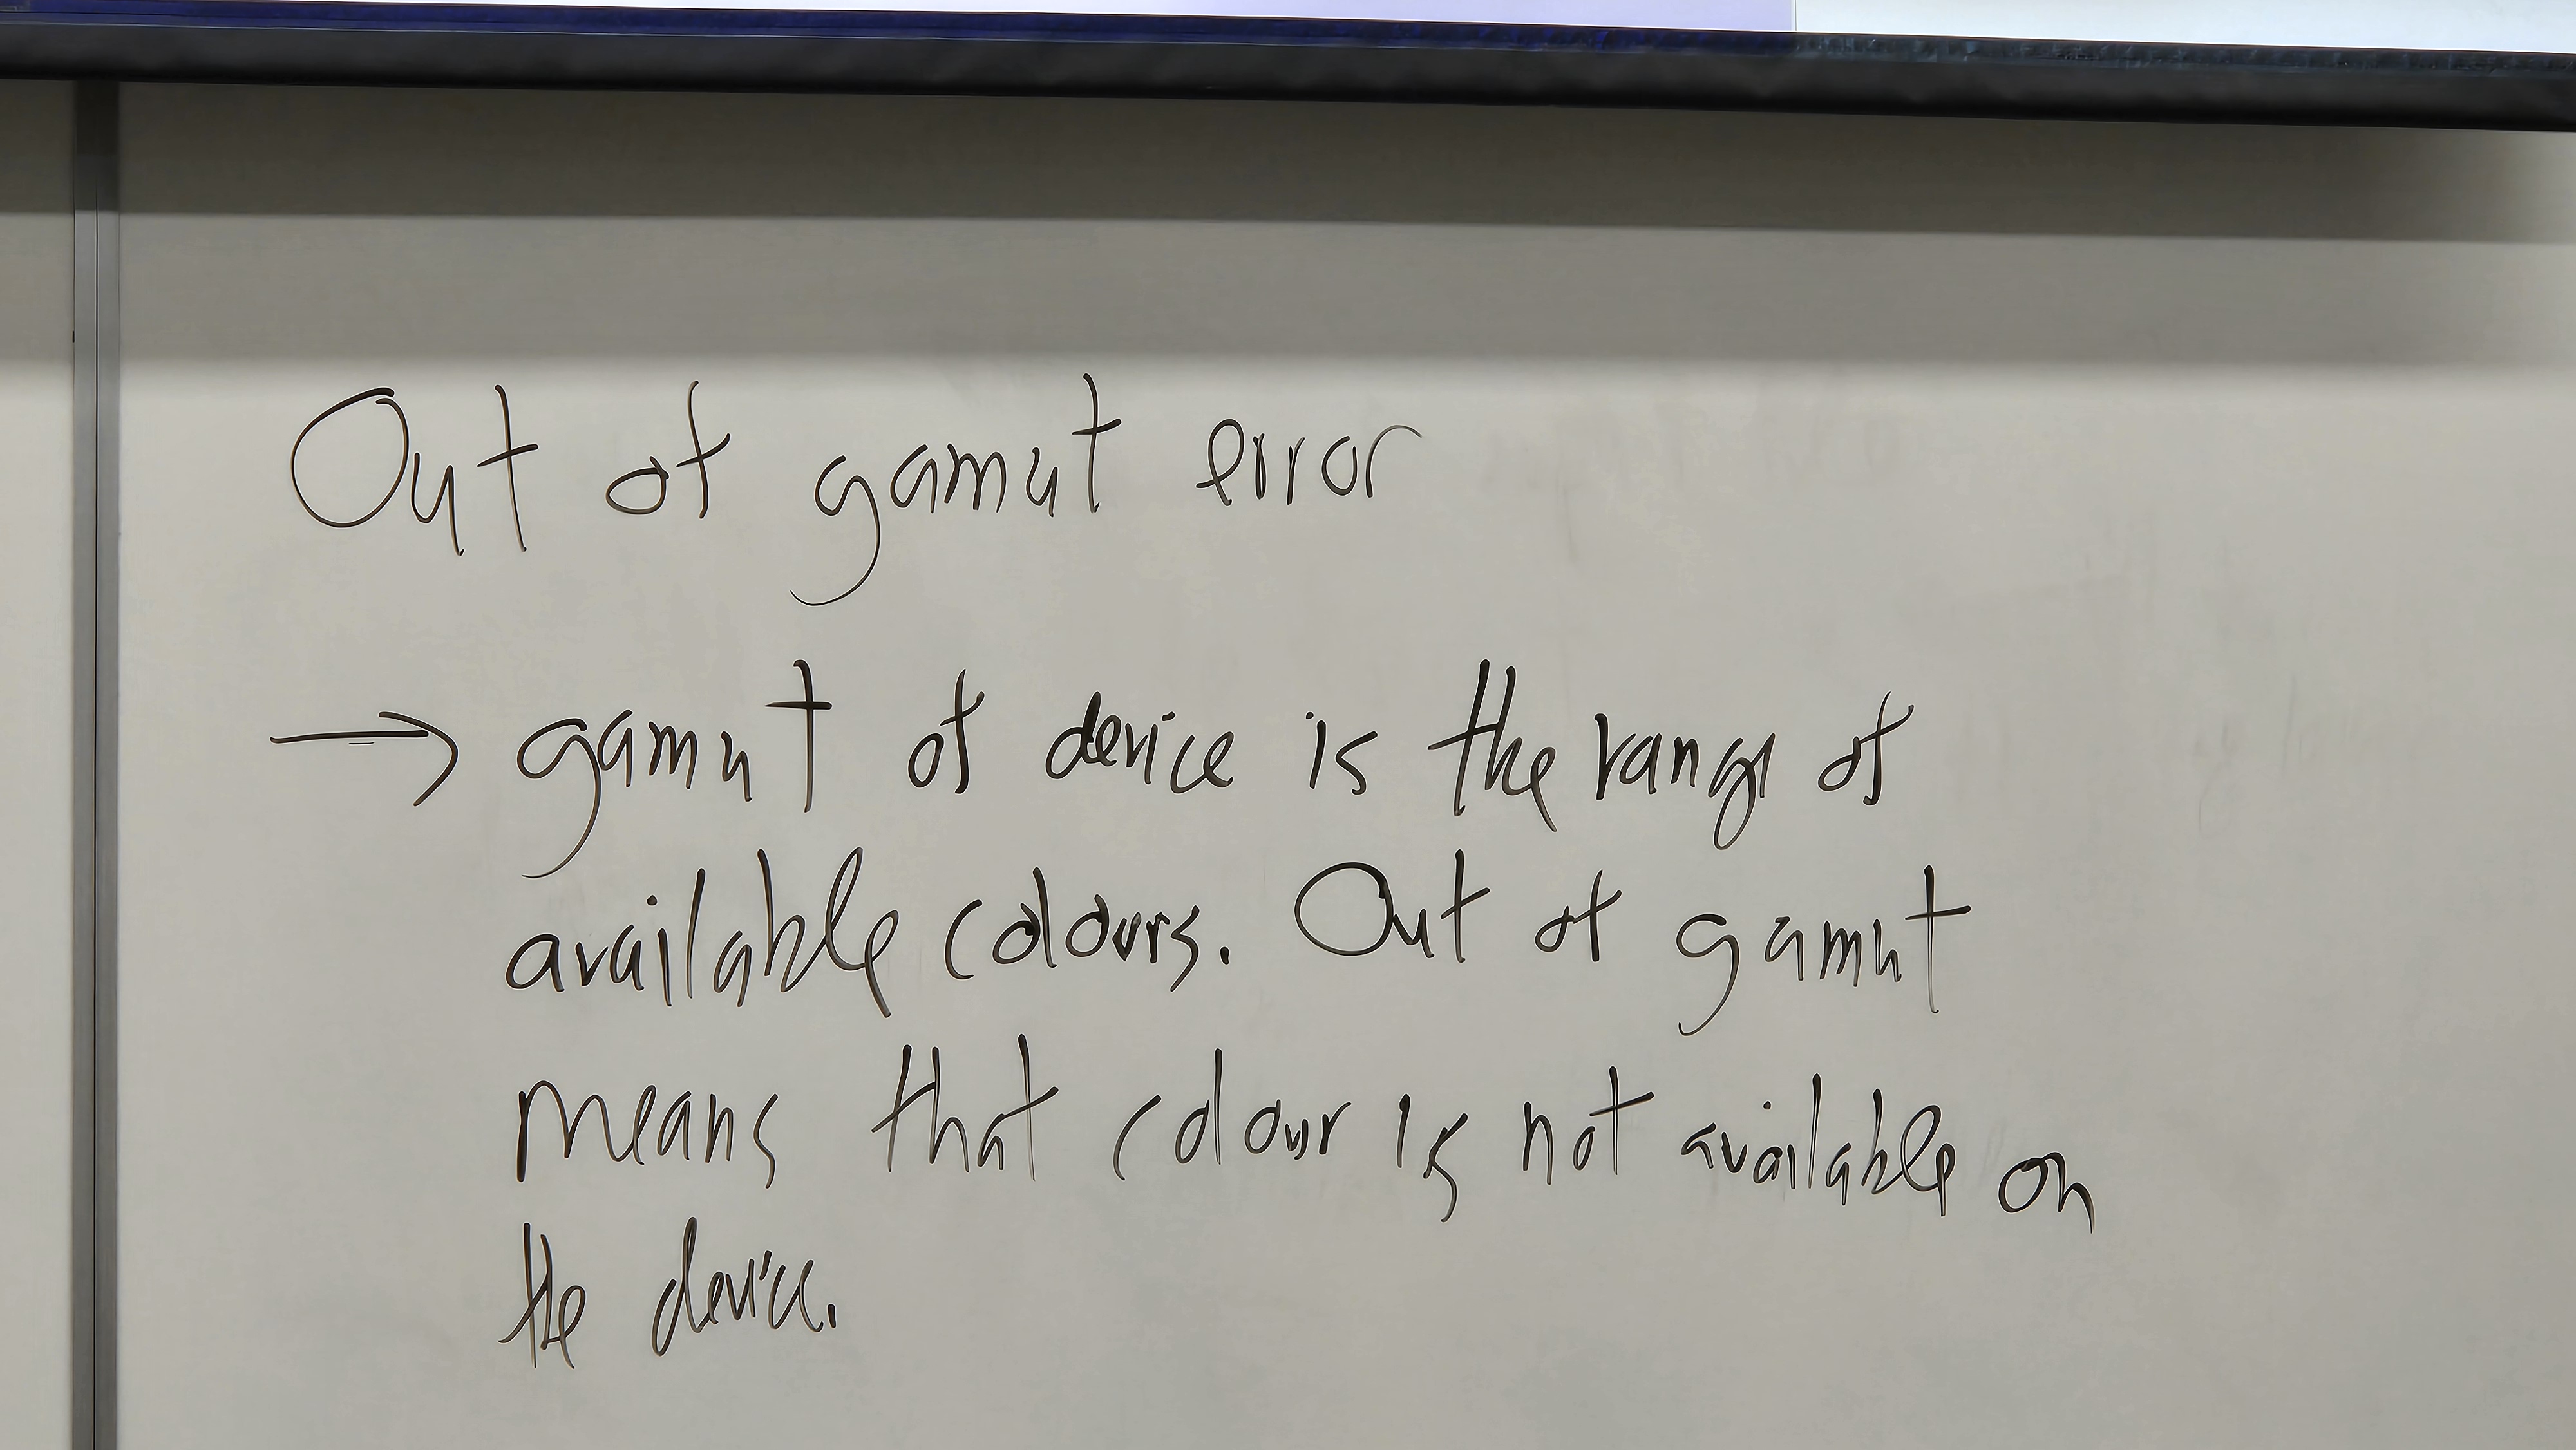 Out of gamut error
→ gamut of device is the range of
available colours. Out of gamut
means that colour is not available on
the device.